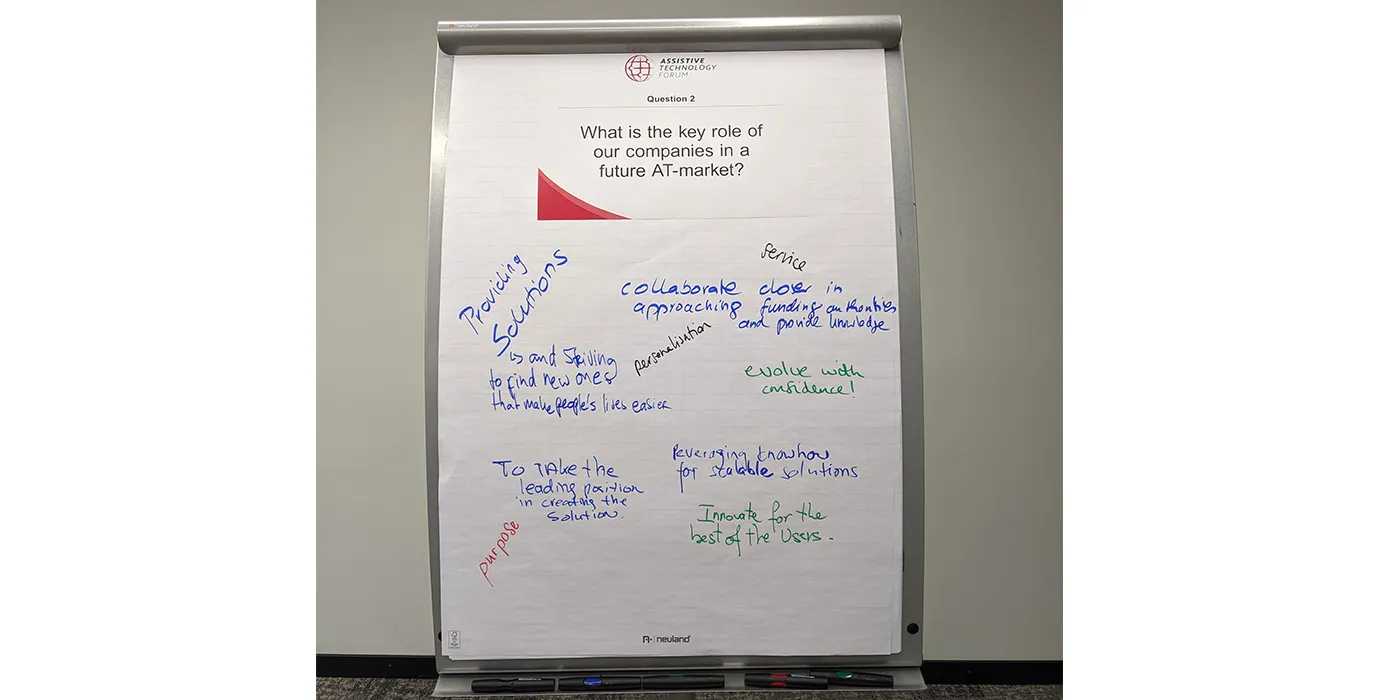 neuland
ASSISTIVE
TECHNOLOGY
FORUM
Question 2
What is the key role of
our companies in a
future AT-market?
Service
Providing
Solutions
collaborate closer in
approaching funding authorities
and provide knowledge
personalisation
↳ and striving
to find new ones
that make people's lives easier
evolve with
confidence!
To TAKE the
leading position
in creating the
solution.
leveraging knowhow
for scalable solutions
Innovate for the
best of the Users.
purpose
neuland